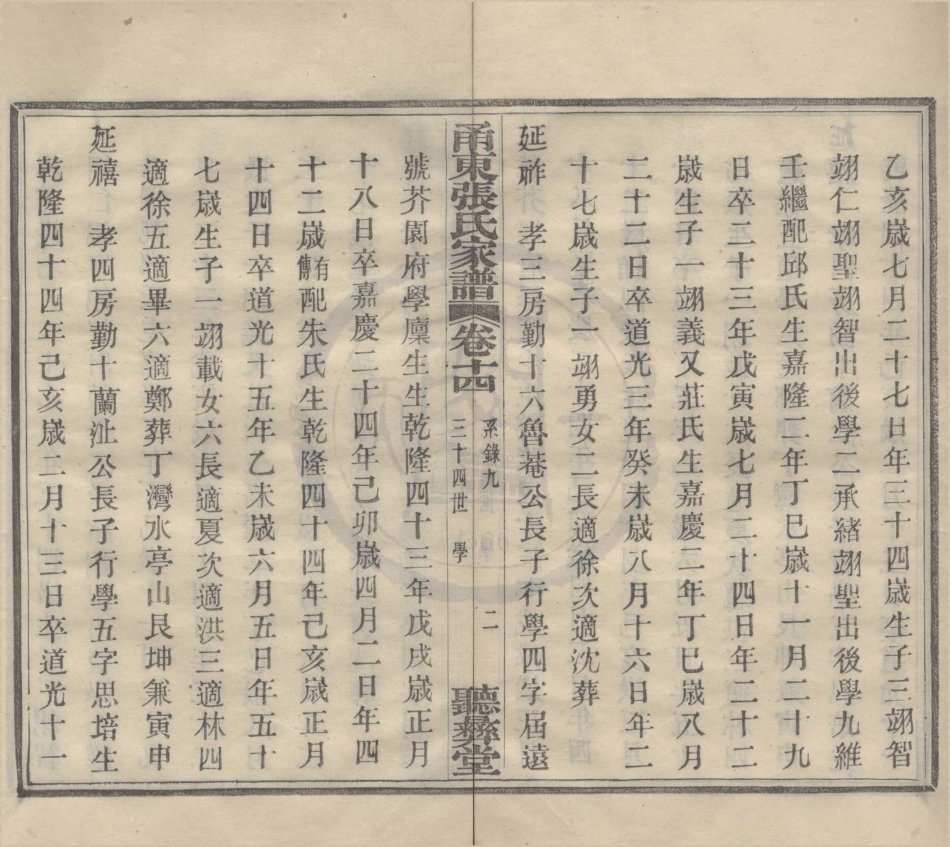 乙亥歲七月二十七日年三十四歲生子三翊智
翊仁翊聖翊智出後學二承緒翊聖出後學九維
壬繼配邱氏生嘉隆二年丁巳歲十一月二十九
日卒二十三年戊寅歲七月二十四日年二十二
歲生子一翊義又莊氏生嘉慶二年丁巳歲八月
二十二日卒道光三年癸未歲八月十六日年二
十七歲生子一翊勇女二長適徐次適沈葬
延祚 孝三房勤十六魯菴公長子行學四字屆遠
甬東張氏家譜 卷十四 系錄九 三十四世 學 二 聽彝堂
號芥園府學廩生生乾隆四十三年戊戌歲正月
十八日卒嘉慶二十四年己卯歲四月二日年四
十二歲有傳配朱氏生乾隆四十四年己亥歲正月
十四日卒道光十五年乙未歲六月五日年五十
七歲生子一翊載女六長適夏次適洪三適林四
適徐五適畢六適鄭葬丁灣水亭山艮坤兼寅申
延禧 孝四房勤十蘭沚公長子行學五字思培生
乾隆四十四年己亥歲二月十三日卒道光十一